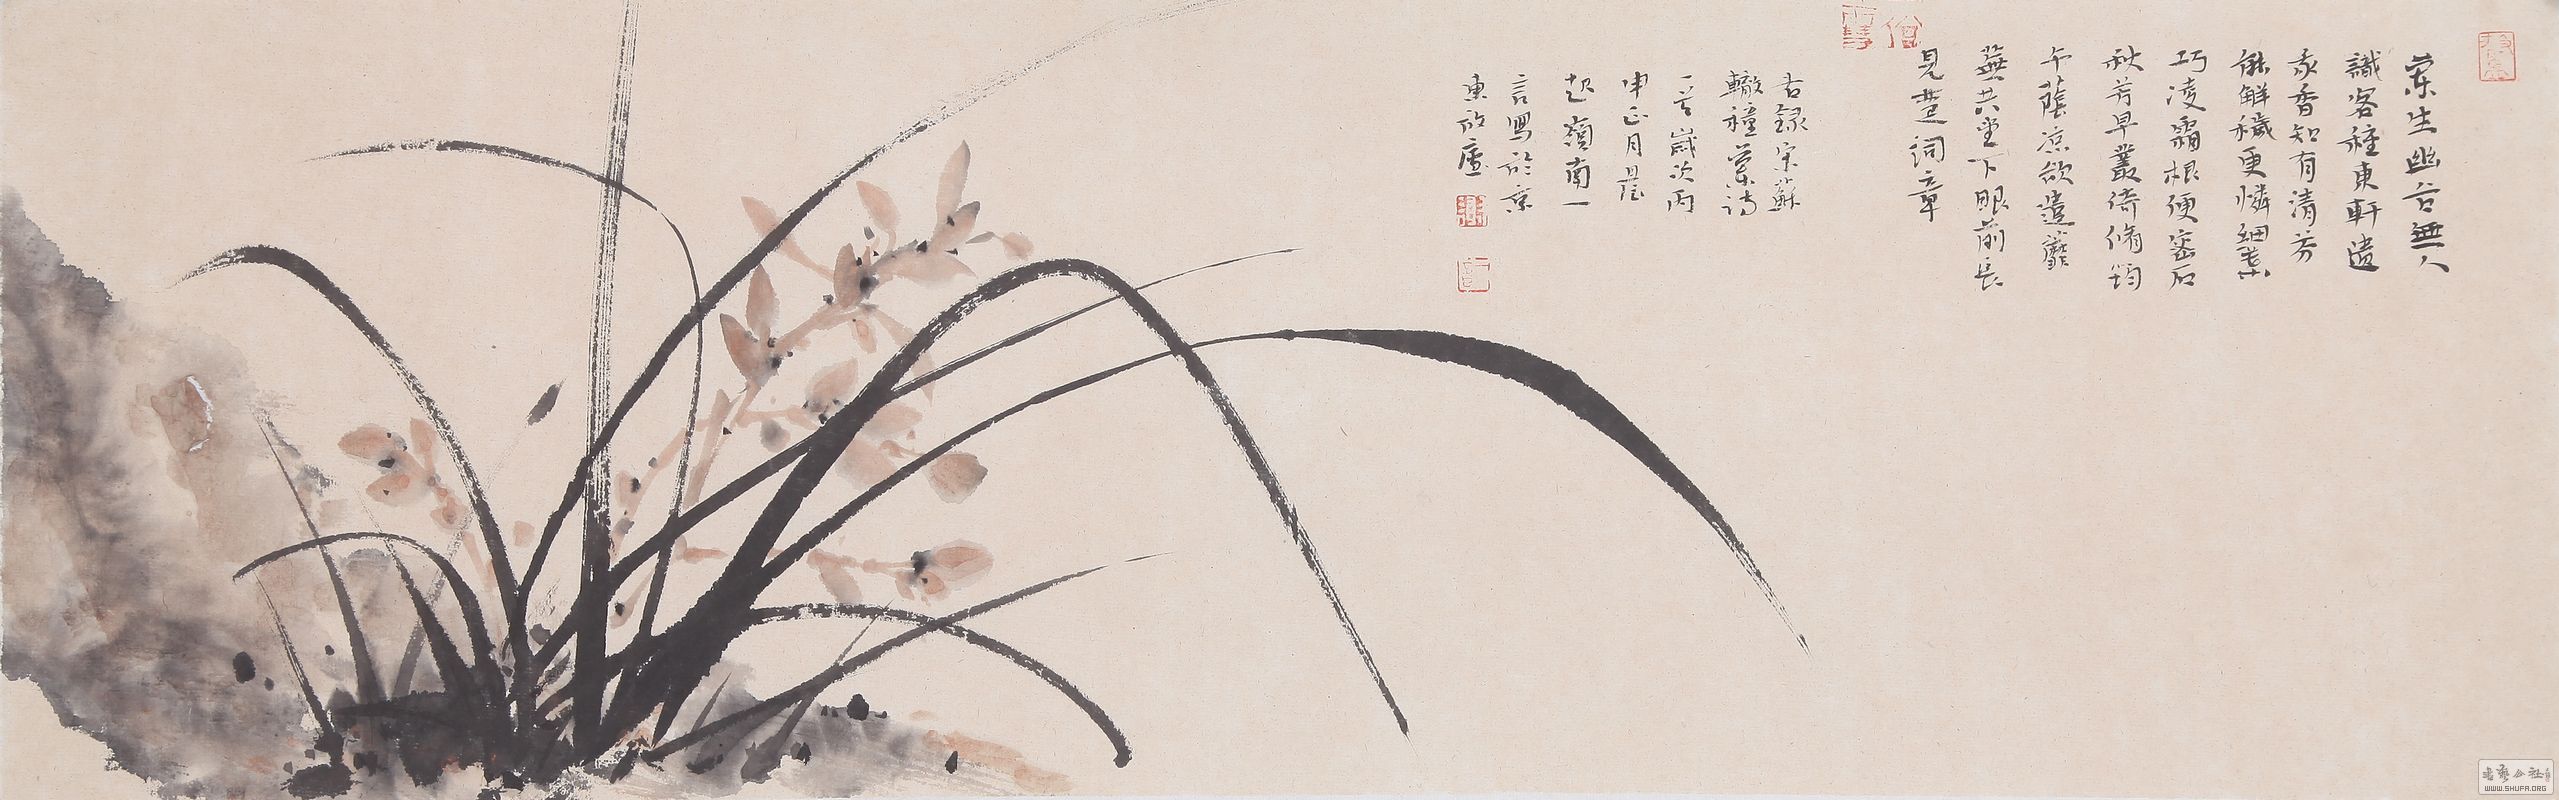 蘭生幽谷無人
識客種東軒遺
我香知有清芬
能解穢更憐細葉
巧凌霜根便密石
秋芳早叢倚脩筠
午蔭凉欲遣蘼
蕪共堂下眼前長
見楚詞章
右錄宋蘇
轍種蘭詩
一首歲次丙
申正月晨
起嶺南一
言寫於京
東放廬
一言
書藝公社
WWW.SHUFA.ORG